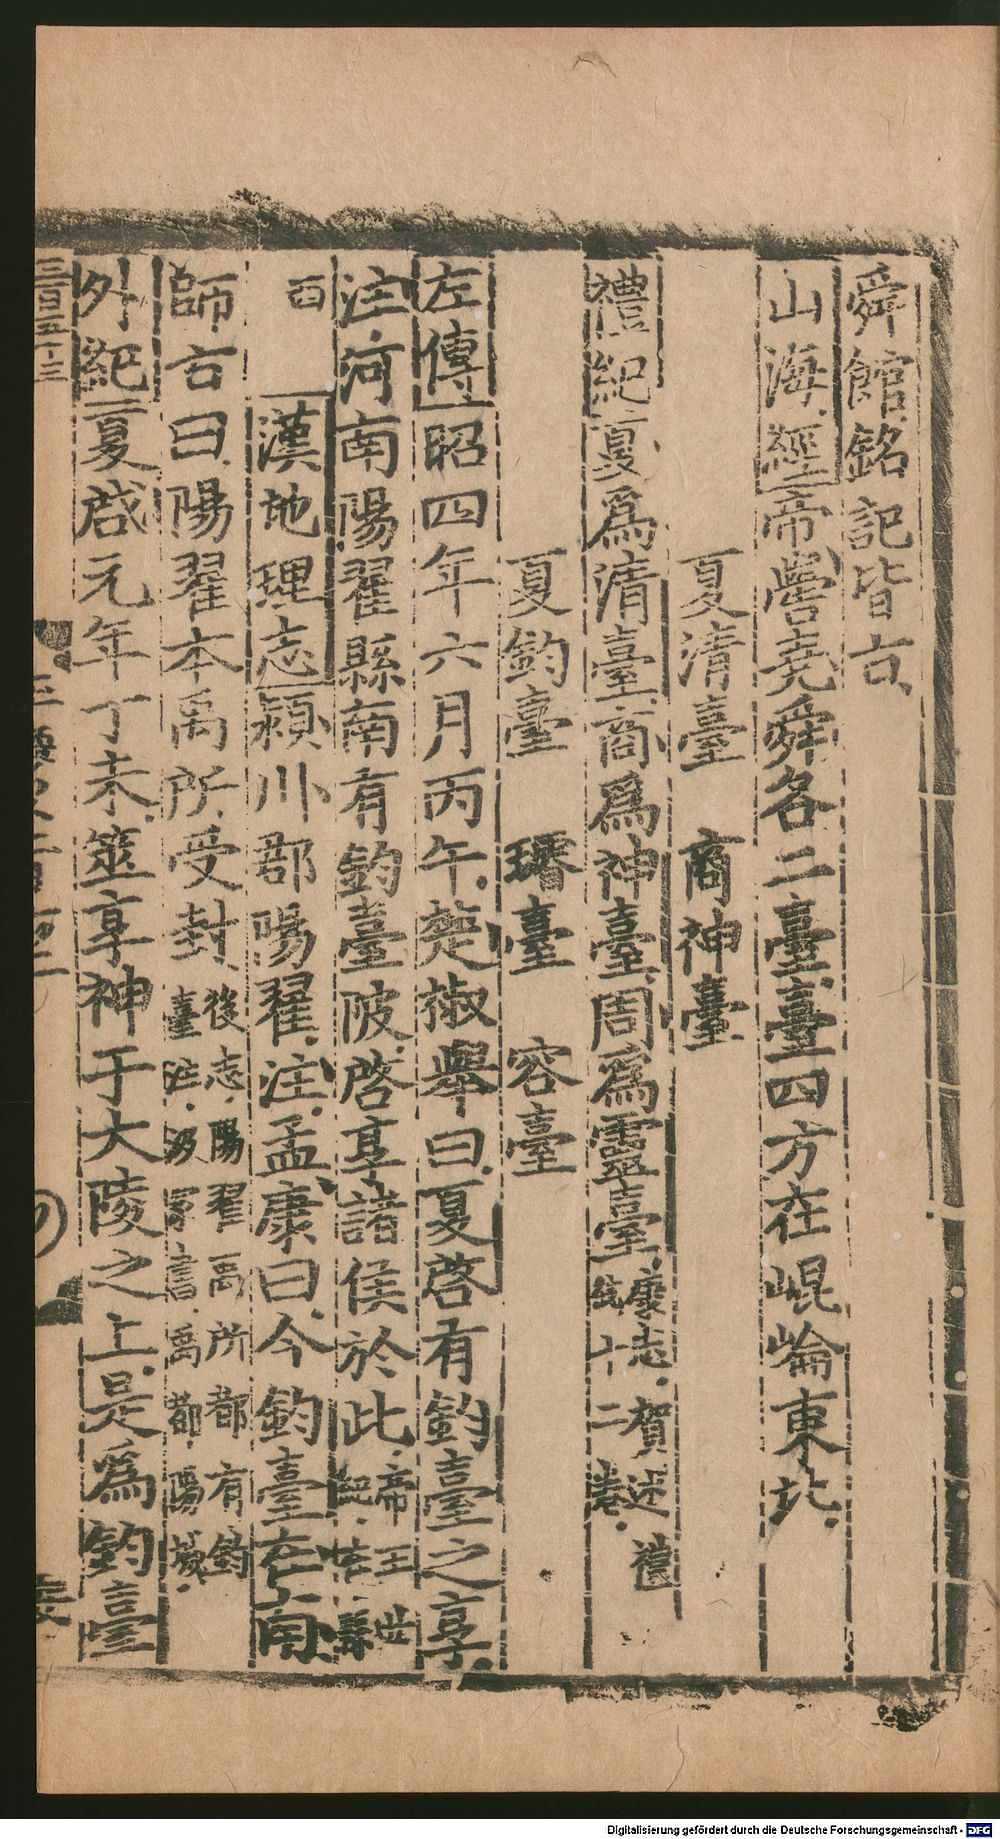 舜館銘記皆云
山海經帝嚳堯舜各二臺臺四方在崐崘東北
夏清臺 商神臺
禮記夏爲清臺商爲神臺周爲靈臺康志賀述禮統十二卷
夏鈞臺 璿臺 容臺
左傳昭四年六月丙午楚椒舉曰夏啓有鈞臺之享
注河南陽翟縣南有鈞臺陂啓享諸侯於此帝王世紀在縣
西 漢地理志潁川郡陽翟注孟康曰今鈞臺在南
師古曰陽翟本禹所受封後志陽翟禹所都有鈞臺注汲冢書禹都陽城
外紀夏啓元年丁未筮享神于大陵之上是爲鈞臺
三百五十三
Digitalisierung gefördert durch die Deutsche Forschungsgemeinschaft - DFG